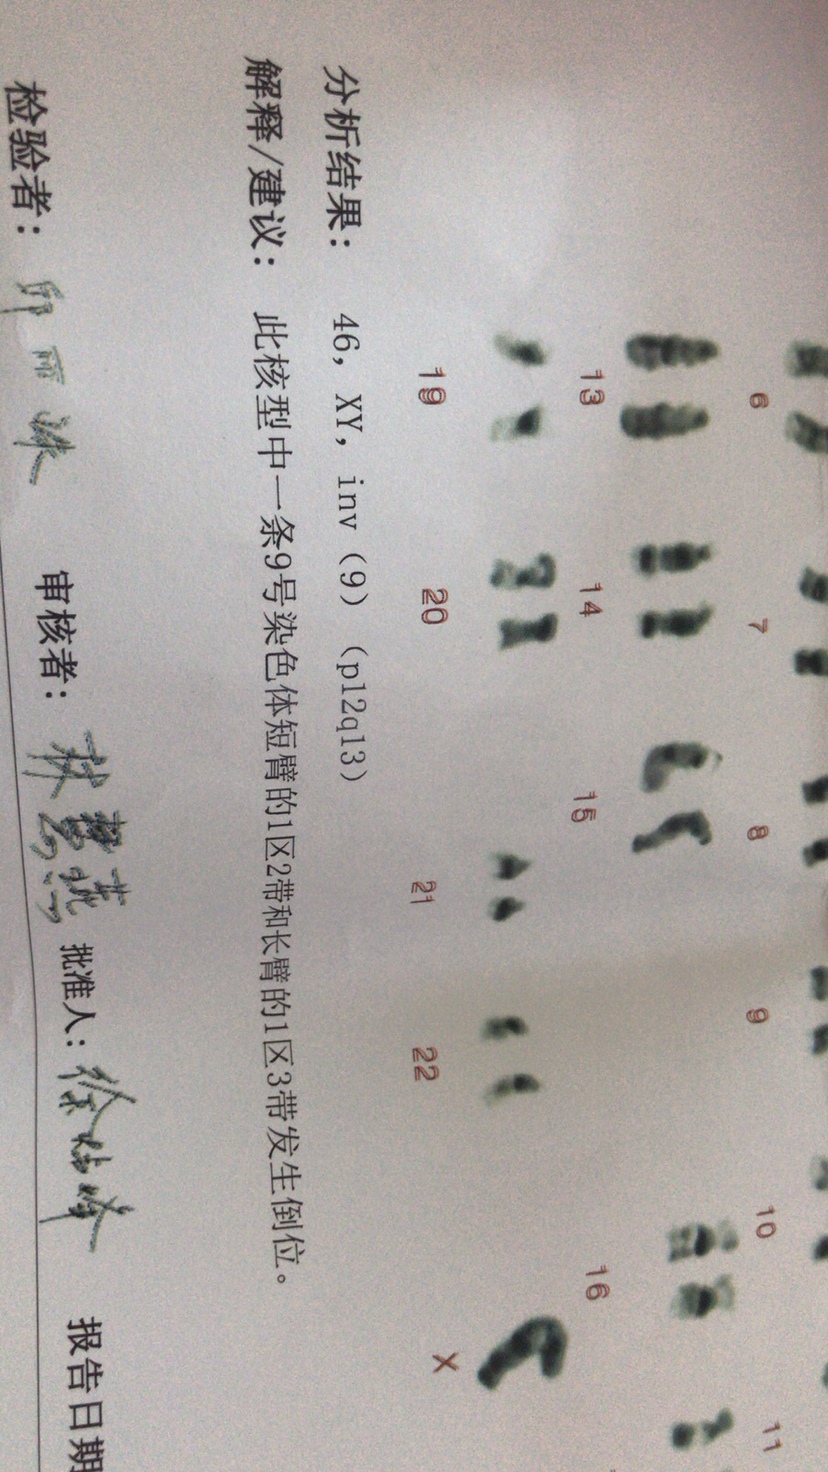 6 7 8 9 10 11
13 14 15 16
19 20 21 22 X
分析结果: 46, XY, inv (9) (p12q13)
解释/建议: 此核型中一条9号染色体短臂的1区2带和长臂的1区3带发生倒位。
检验者: 审核者: 批准人: 报告日期